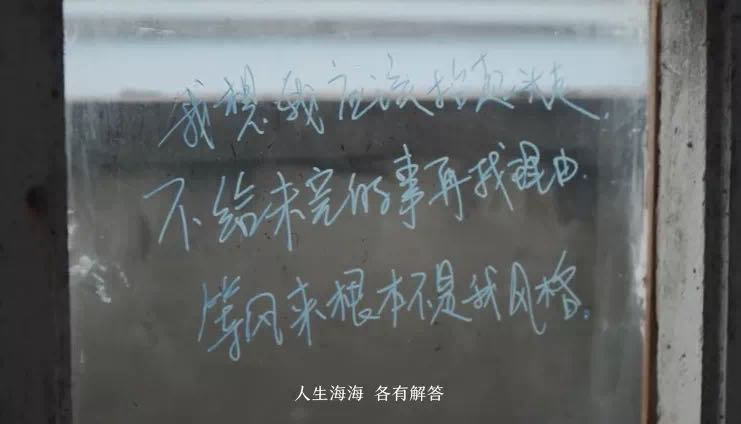 我想我应该抬起头走.
不给未完的事再找理由.
等风来根本不是我风格.
人生海海 各有解答